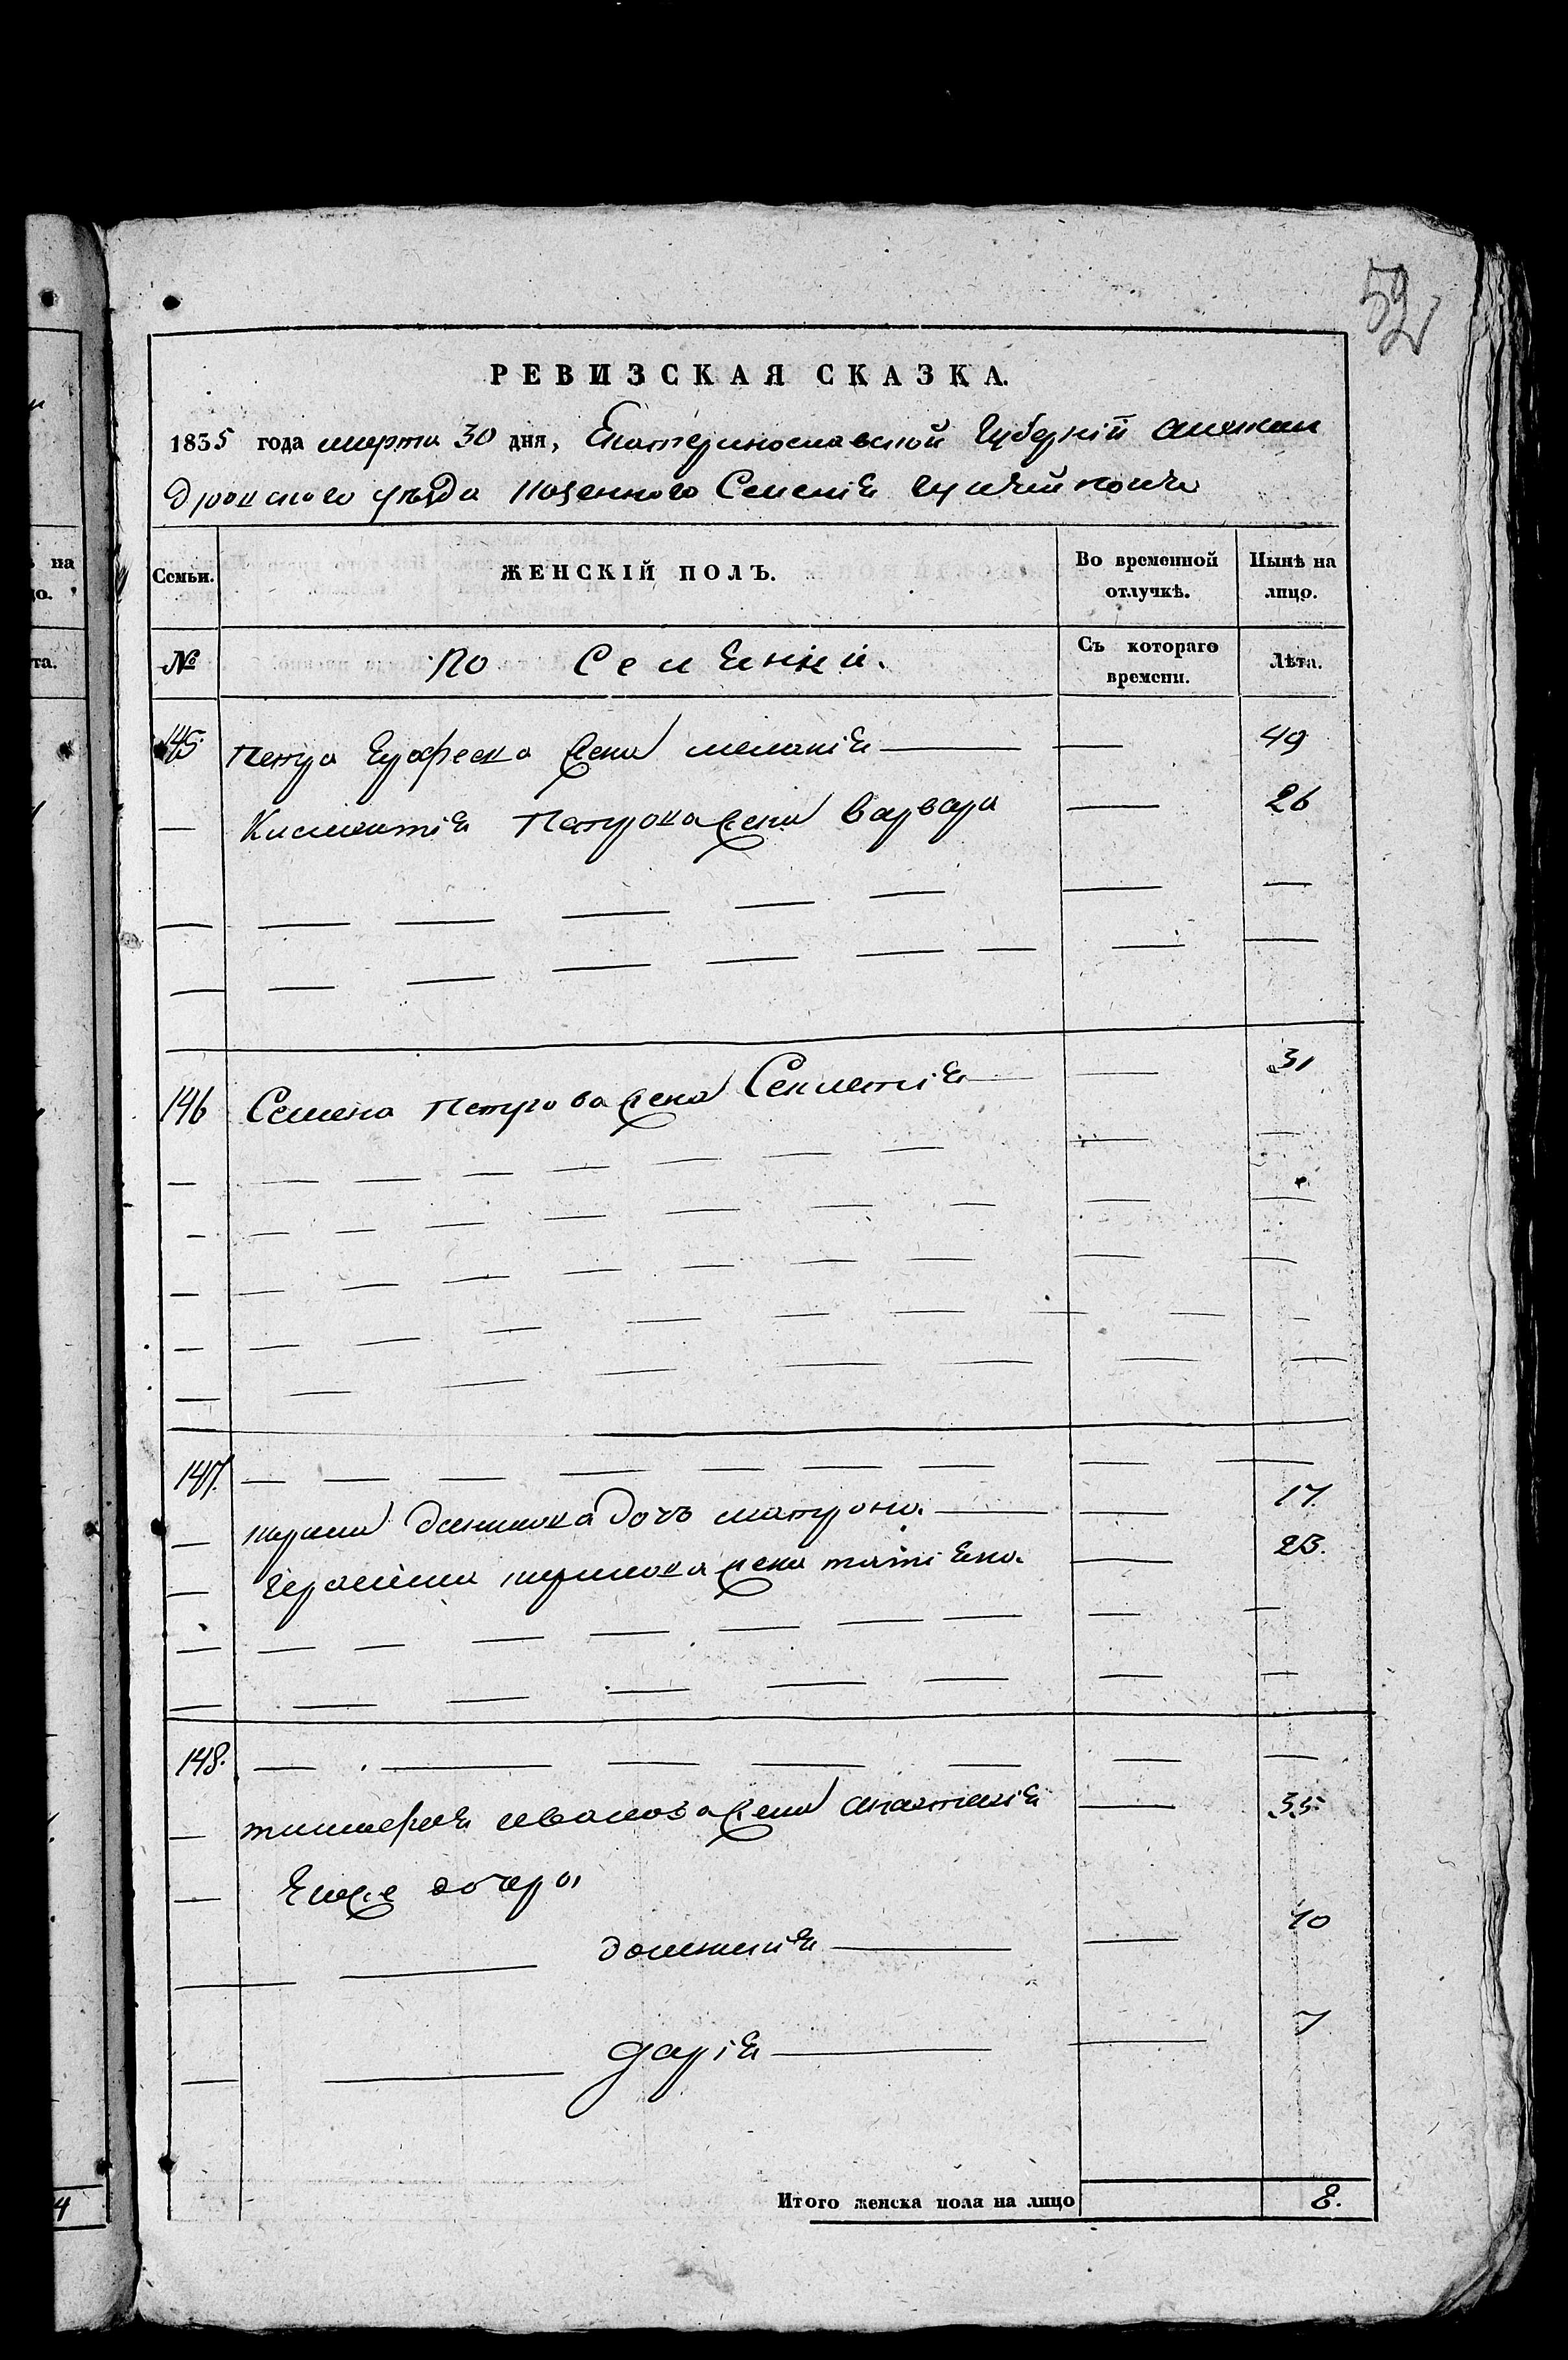 52
РЕВИЗСКАЯ СКАЗКА.
1835 года марта 30 дня, Екатеринославской Губерніи Алексан
дровского уезда казенного Селенія
Семьи.
ЖЕНСКІЙ ПОЛЪ.
Во временной отлучкѣ.
Нынѣ на лицо.
№
По Селенію.
Съ котораго времени.
Лѣта.
145. Петра жена меланія — — 49
— Климентія Петрова жена Варвара — 26
146 Семена Петрова жена Секлетія — — 31
147.
— Данилова дочь матрона — — 17.
— Герасима жена татіяна — 23.
148.
— тимофея иванова жена анастасія — 35
— Егоже дочеры
домникія — — 10
дарія — — 7
Итого женска пола на лицо 8.
на
та.
4